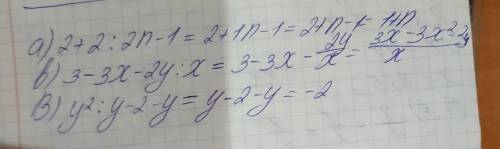 а) 2+2:2n-1=2+1n-1=2+n-1=1+n
в) 3-3x-2y:x=3-3x-2y/x=3x-3x²-2y/x
В) y²:y-2-y=y-2-y=-2